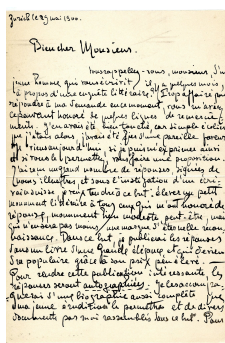 Zurich le 23 mai 1900.
Bien cher Monsieur.
Vous rappelez-vous, monsieur, d'un
jeune homme, qui vous écrivit il y a quelques mois,
à propos d'une enquête littéraire? Trop affairé pour
répondre à ma demande en ce moment, vous m'avez
cependant honoré de quelques lignes de remercie-
ments. J'en avais été bien touché, car simple écolier
que j'étais alors, j'avais été fier d'une pareille faveur.
Je viens aujourd'hui, si je puis m'exprimer ainsi
et si vous le permettez, vous faire une proposition.
J'ai reçu un grand nombre de réponses, signées de
noms illustres et sous l'instigation d'un écri-
vain suisse, je veux tendre à ce but: élever un petit
monument littéraire à tous ceux qui m'ont honoré de
réponses, monument bien modeste peut-être, mais
qui n'en sera pas moins une marque d'éternelle recon-
naissance. Dans ce but, je publierai les réponses
dans un livre d'une
populaire grâce à son prix peu élevé.
Pour rendre cette publication intéressante, les
réponses seront autographiées. Je les accompa-
gnerai d'une biographie aussi complète que
ma jeune érudition le permettra et de divers
documents par moi rassemblés dans ce but. Pour